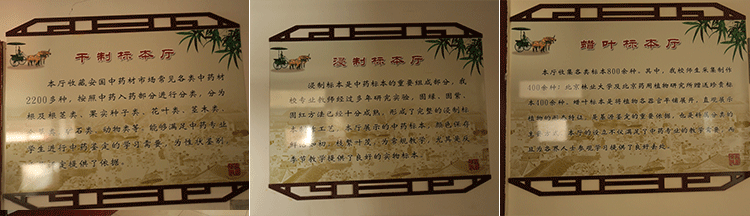 干制标本厅
本厅收藏安国中药材市场常见各类中药材
2200多种，按照中药入药部分进行分类，分为
根及根茎类、果实种子类、花叶类、茎木类、
石类、动物类等，能够满足中药专业
学生进行中药鉴定的学习需要，为性状鉴别
提供了依据。
浸制标本厅
浸制标本是中药标本的重要组成部分，我
校专业教师经过多年研究实验，固绿、固紫、
固红方法已经十分成熟，形成了完整的浸制标
工艺。本厅展示的中药标本，颜色保存
枝繁叶茂，为常规教学，尤其是反
季节教学提供了良好的实物标本。
蜡叶标本厅
本厅收集各类标本800余种，其中，我校师生采集制作
400余种；北京林业大学及北京药用植物研究所赠送珍贵标
本400余种，蜡叶标本是将植物各器官平铺展开，直观展示
植物的形态特征，是基源鉴定的重要依据，也是
的设立不仅满足了中药专业的教学需要，
且为各界人士参观学习提供了良好去处。